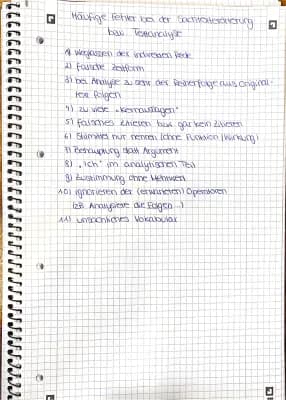 Häufige Fehler bei der Sachtexterörterung
bzw. Textanalyse
1) Weglassen der indirekten Rede
2) falsche Zeitform
3) bei Analyse zu sehr der Reihenfolge aus Original-
text folgen
4) zu viele "Kernaussagen"
5) falsches Zitieren bzw. gar kein Zitieren
6) Stilmittel nur nennen (ohne Funktion/Wirkung)
7) Behauptung statt Argument
8) "Ich" im analytischen Teil
9) Zustimmung ohne Mehrwert
10) ignorieren der (erweiterten) Operatoren
(zB Analysiere die Folgen...)
11) unsachliches Vokabular